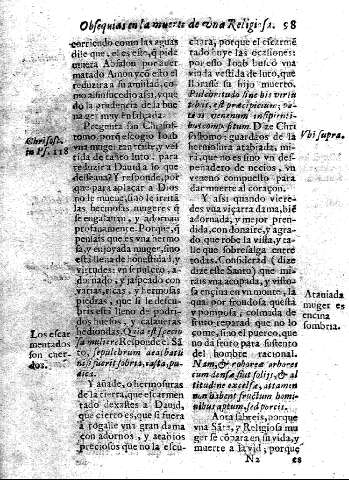 Obsequias en la muerte de vna Religiosa. 58
corriendo como las aguas
dile que, el es esto, q pide
Absalon por auer
matado Amon, y cō esto el
reduzira a su amistad, co-
mo assi sucedio assi, y que-
do la prudencia de la bue-
na ger muy ensalçada.
Pregunta san Chrisos-
tomo: porq escogio Ioab
vna muger
tida de luto: para
reduzir a Dauid a lo que
desseaua? Y responde, por
que para aplacar a Dios
no le mueue, sino le irrita
las hermosas mugeres q̄
se engalanan, y adornan
profanamente. Porque, q̄
pensais que es vna hermo
sa, y enjoyada muger, sino
està llena de honestidad, y
virtudes: vn sepulcro, a-
dornado, y jaspeado con
varias, ricas, y hermosas
piedras, que si le descu-
bris està lleno de podri-
dos huesos, y calaueras
hediondas. Quid est specio
sa mulier? Responde el Sā
to, sepulchrum dealbatū
nisi fuerit sobria, casta, pu-
dica.
Y añade, ò hermosuras
de la tierra, que escarmen
tado dexastes a Dauid,
que cierto es, que si fuera
à rogalle vna gran dama
con adornos, y atauios
preciosos que no la escu-
Chrisost.
in Ps. 118
Los escar
mentados
son cuer-
dos.
chara, porque el escarmē
tado huye las ocasiones:
por esso Ioab buscò vna
viuda vestida de luto, que
llorasse su hijo muerto.
Pulchritudo sine bis virtu
tibus, est præcipitium; pa-
tens venenum insipienti-
bus compositum. Dize Chri
sostomo: guardòs de la
hermosura atabiada, mi-
ra, que no es sino vn des-
peñadero de necios, vn
veneno compuesto para
dar muerte al coraçon.
Y assi quando viere-
des vna viçarra dama, biē
adornada, y mejor pren-
dida, con donaire, y agra-
do, que robe la vista, y ta-
lle que sobresalga entre
todas. Considerad (dize
dize este Santo) que mi-
rais vna acopada, y visto-
sa encina en vn monte, la
qual por frondosa que està
y pomposa, colmada de
fruto reparad que no lo
come, sino el puerco, que
no da fruto para sustento
del hombre racional.
Nam, & roborea arbores
cum densæ sint folijs, & al
titudine excelsæ, attamen
non habent fructum homi-
nibus aptum, sed porcis.
Aora sabreis, porque
vna Santa, y Religiosa mu
ger se copara en su vida, y
muerte a la vid; porque
N2 es
Vbi supra.
Ataniada
muger es
encina
sombria.